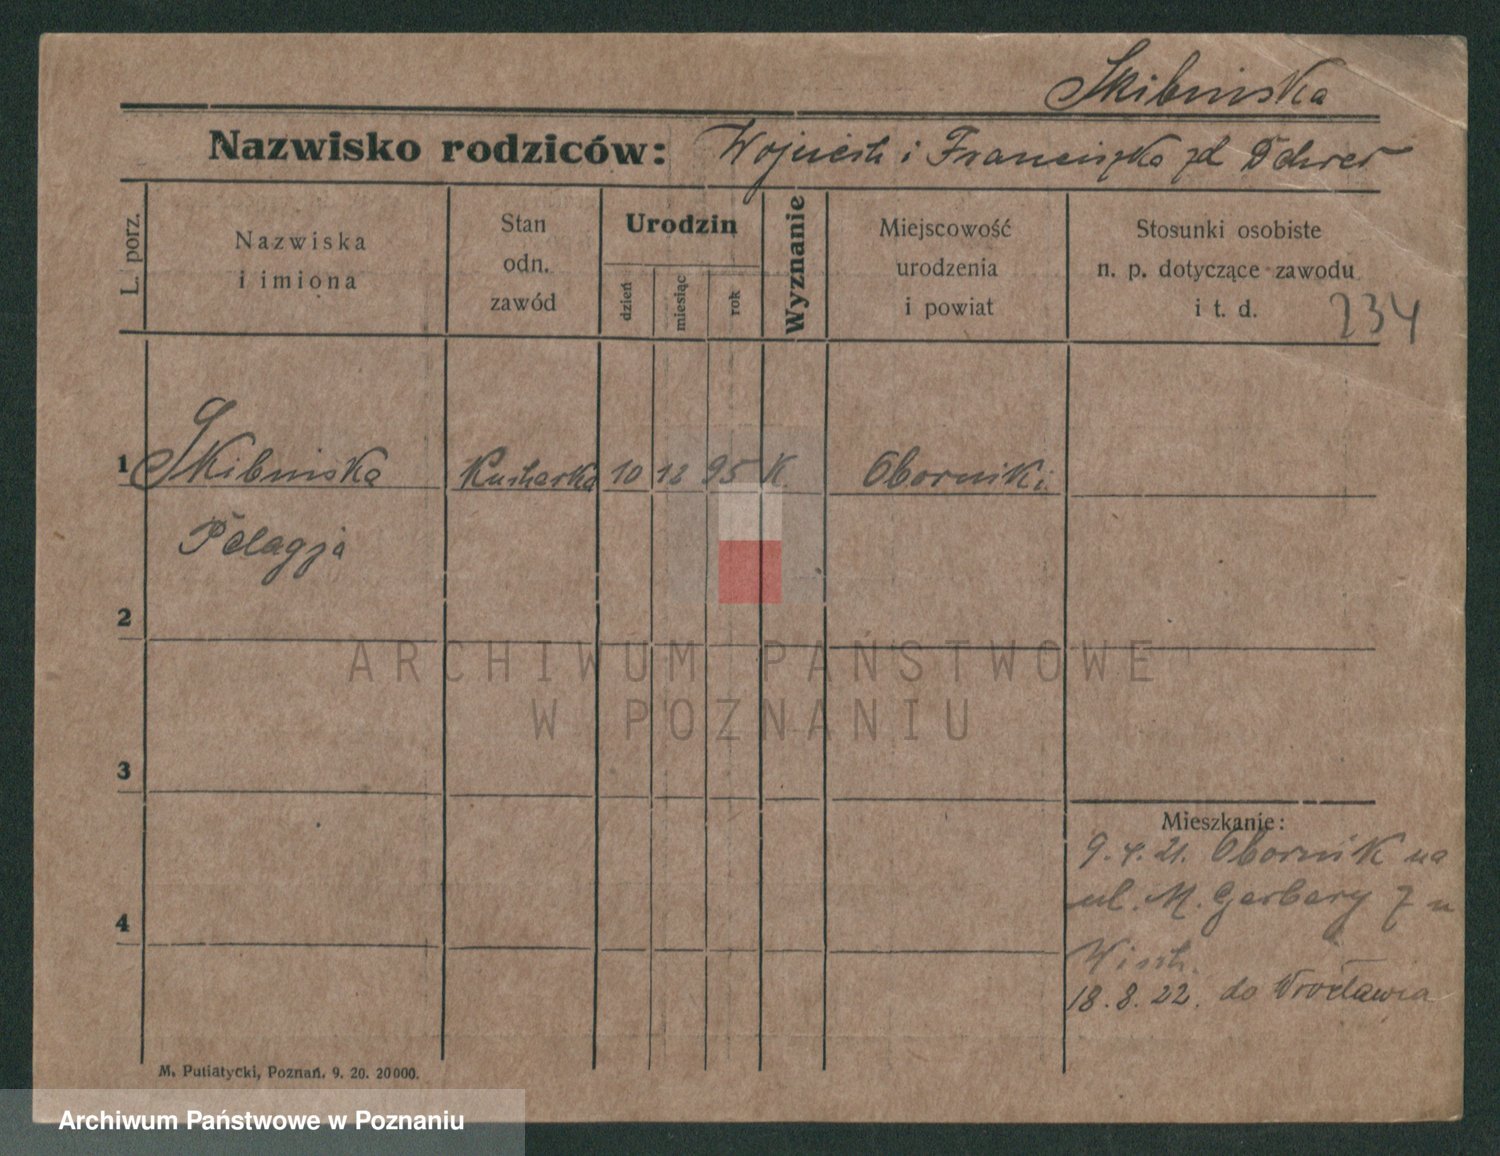 Skibinska
Nazwisko rodziców: Wojciech i Franciszka zd
L. porz.
Nazwiska
i imiona
Stan
odn.
zawód
Urodzin
dzień
miesiąc
rok
Wyznanie
Miejscowość
urodzenia
i powiat
Stosunki osobiste
n. p. dotyczące zawodu
i t. d.
234
1 Skibinska Kucharka 10 12 95 K. Oborniki
Pelagja
2
3
4
Mieszkanie:
9.4.21. Obornik na
ul. M. Garbary 7 u
18.8.22. do Wrocławia
M. Putiatycki, Poznań. 9. 20. 20000.
ARCHIWUM PAŃSTWOWE
W POZNANIU
Archiwum Państwowe w Poznaniu